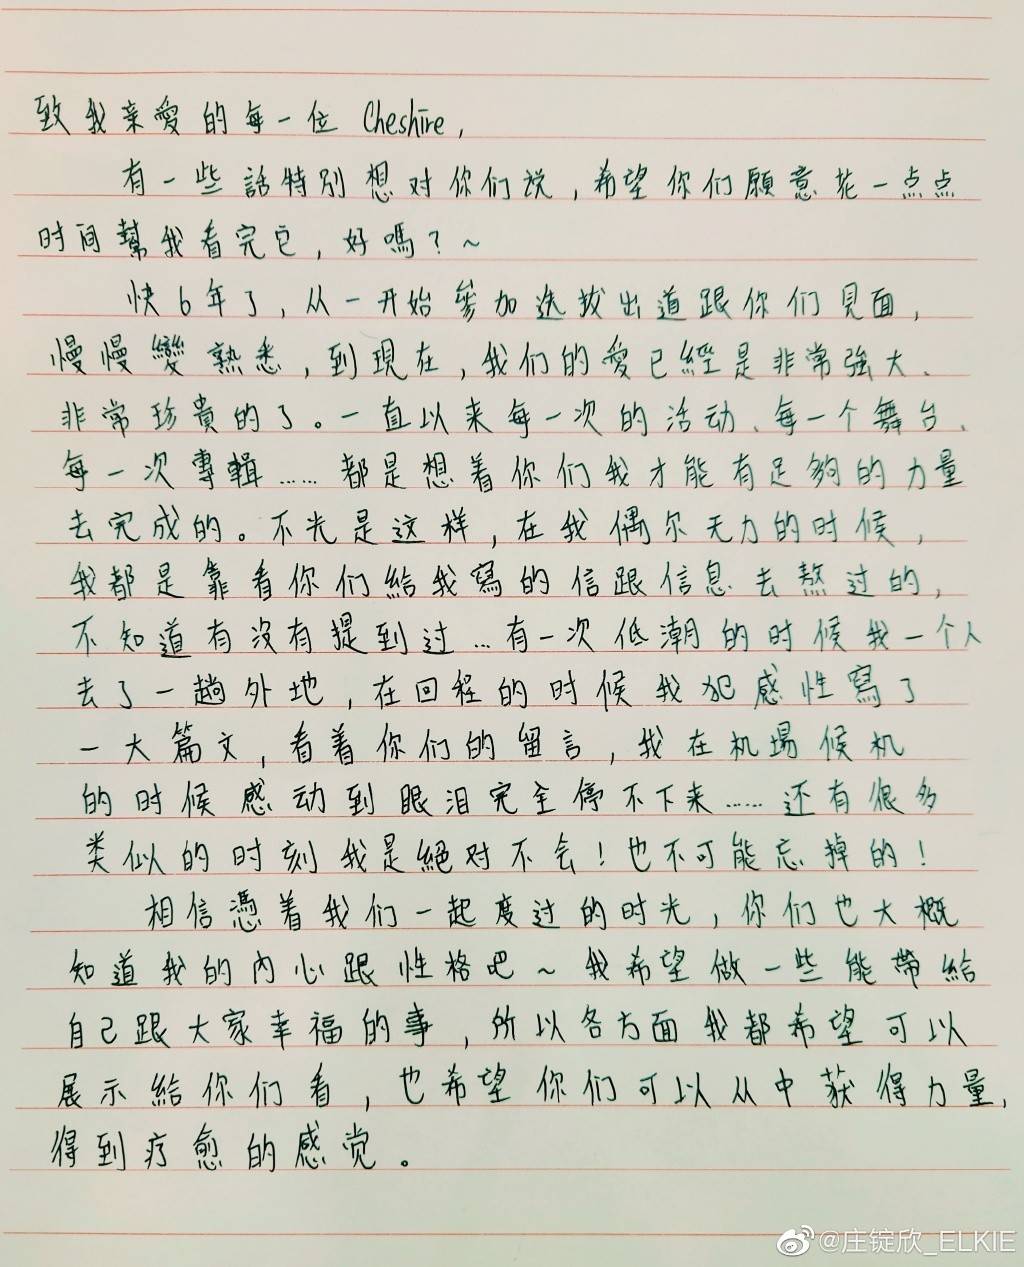 致我亲愛的每一位 Cheshire,
有一些話特別想对你们说,希望你们願意花一点点
时间幫我看完它,好嗎?~
快6年了,从一开始參加选拔出道跟你们見面,
慢慢變熟悉,到現在,我们的愛已經是非常強大、
非常珍貴的了。一直以来每一次的活动、每一个舞台、
每一次專輯……都是想着你们我才能有足夠的力量
去完成的。不光是这样,在我偶尔无力的时候,
我都是靠看你们給我寫的信跟信息去熬过的,
不知道有沒有提到过…有一次低潮的时候我一个人
去了一趟外地,在回程的时候我犯感性寫了
一大篇文,看着你们的留言,我在机場候机
的时候感动到眼泪完全停不下来……还有很多
类似的时刻我是絕对不会!也不可能忘掉的!
相信憑着我们一起度过的时光,你们也大概
知道我的內心跟性格吧~我希望做一些能帶給
自己跟大家幸福的事,所以各方面我都希望可以
展示給你们看,也希望你们可以从中获得力量,
得到疗愈的感觉。
@庄锭欣_ELKIE